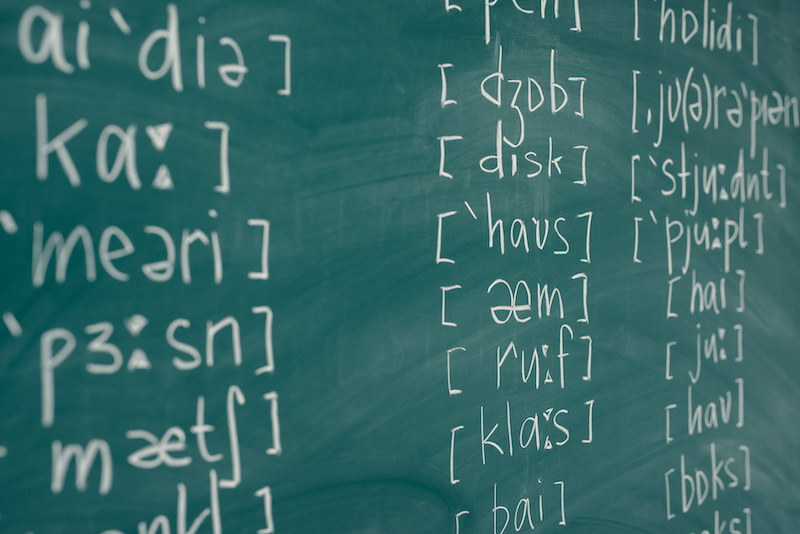 ai`diə ]
kaː ]
`meəri ]
`pɜːsn ]
mætʃ ]
[ pen ]
[ dʒɒb]
[ disk ]
[`haʊs]
[ æm ]
[ ruːf ]
[klaːs ]
[ bai ]
[`hɒlidi]
[ˌjʊ(ə)rə`pıən
[`stjuːdnt]
[`pjuːpl]
[ hai ]
[ juː ]
[haʋ]
[bɒks]